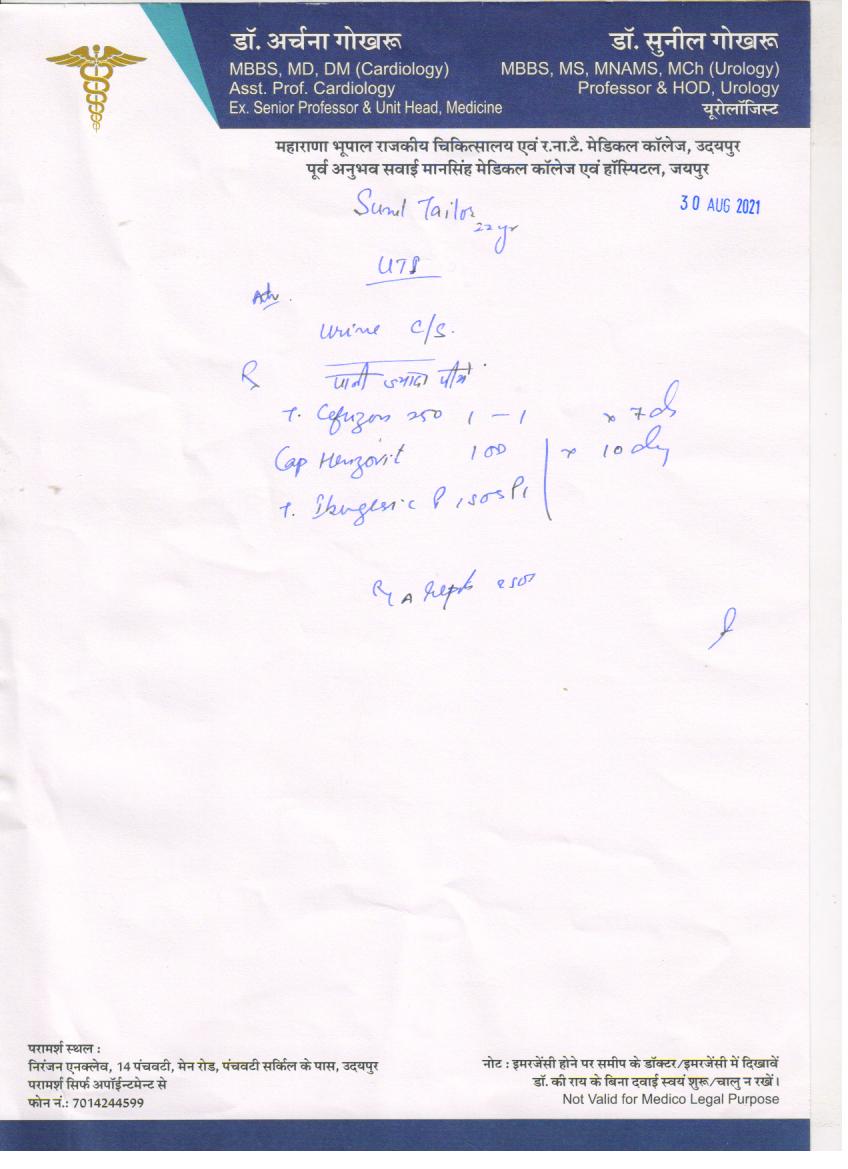 डॉ. अर्चना गोखरू
MBBS, MD, DM (Cardiology)
Asst. Prof. Cardiology
Ex. Senior Professor & Unit Head, Medicine
डॉ. सुनील गोखरू
MBBS, MS, MNAMS, MCh (Urology)
Professor & HOD, Urology
यूरोलॉजिस्ट
महाराणा भूपाल राजकीय चिकित्सालय एवं र.ना.टै. मेडिकल कॉलेज, उदयपुर
पूर्व अनुभव सवाई मानसिंह मेडिकल कॉलेज एवं हॉस्पिटल, जयपुर
30 AUG 2021
Sunil Tailor
22 yr
Adv.
Urine C/S.
पानी ज्यादा पीयें
T. 250 1 - 1 x 7 d
Cap 100 x 10 day
T. Ibugesic P 1 SOS
परामर्श स्थल :
निरंजन एनक्लेव, 14 पंचवटी, मेन रोड, पंचवटी सर्किल के पास, उदयपुर
परामर्श सिर्फ अपॉईन्टमेन्ट से
फोन नं.: 7014244599
नोट : इमरजेंसी होने पर समीप के डॉक्टर/इमरजेंसी में दिखावें
डॉ. की राय के बिना दवाई स्वयं शुरू/चालु न रखें।
Not Valid for Medico Legal Purpose